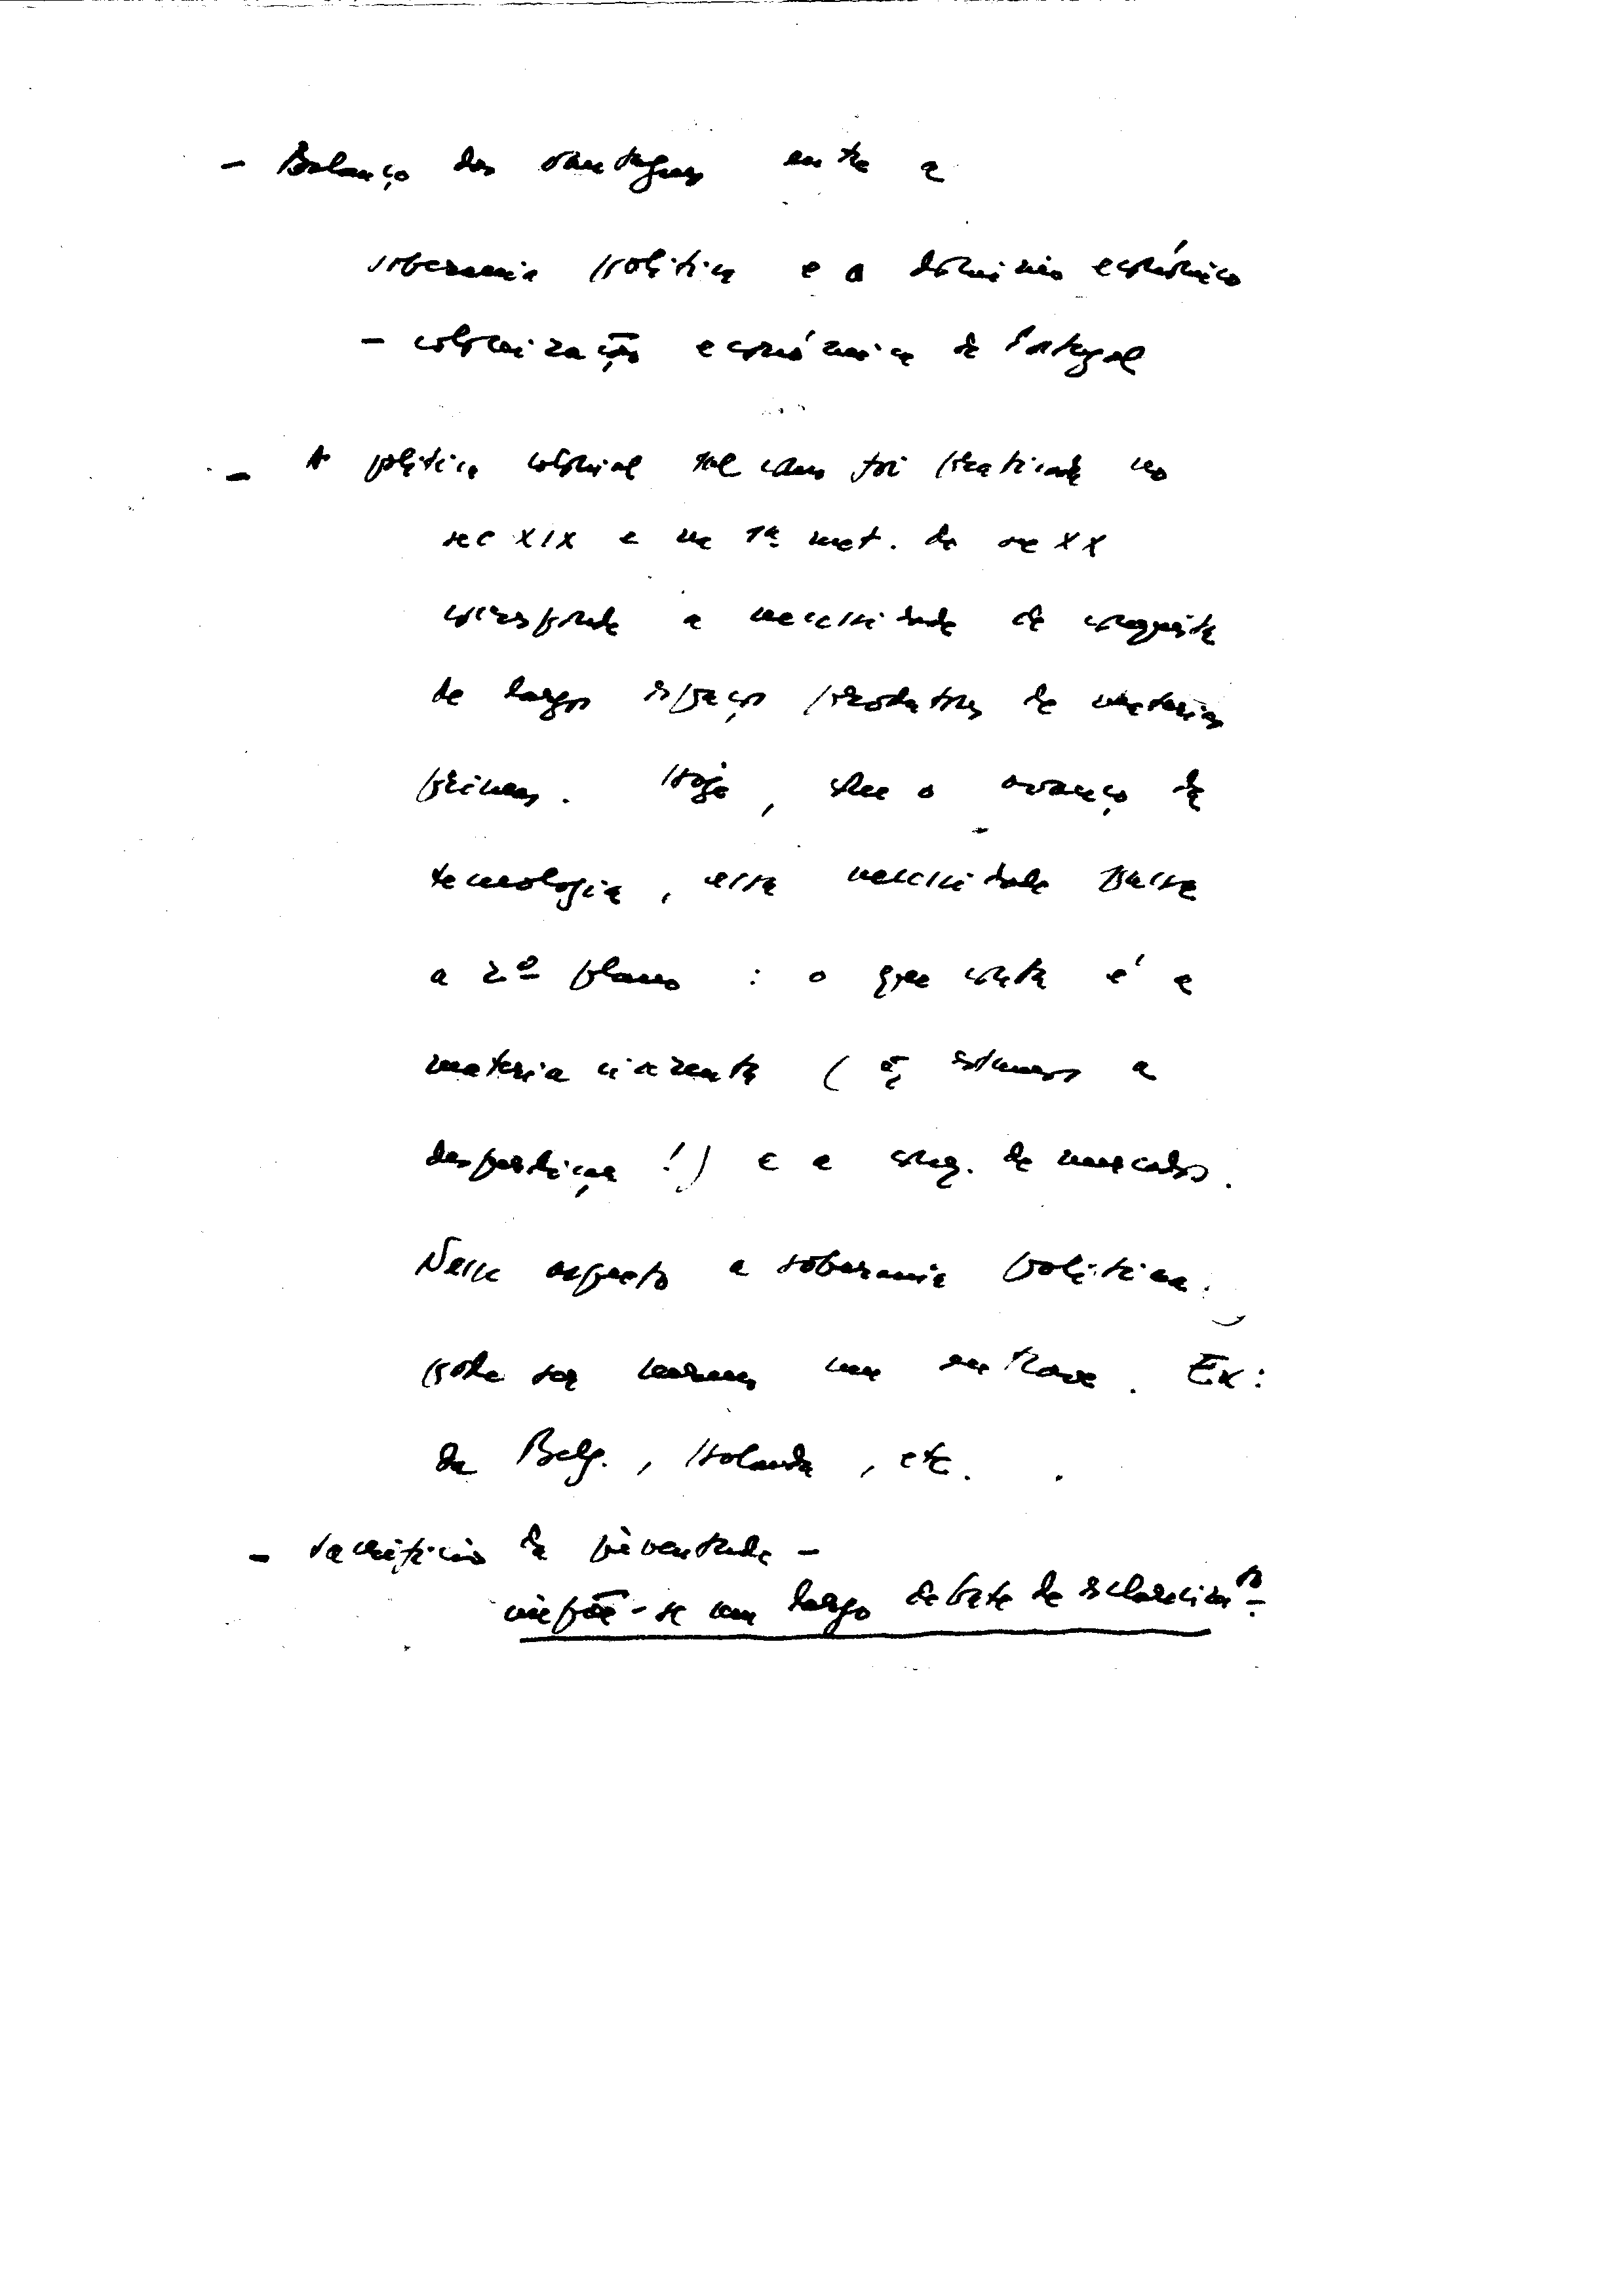 - Balanço das vantagens entre a
soberania politica e o dominio económico
- colonização económica de Portugal
- A politica colonial tal como foi praticada no
sec XIX e na 1ª met. do sec XX
corresponde a necessidade de conquista
de largos espaços produtores de materias
primas. Hoje, com o avanço da
tecnologia, essa necessidade passa
a 2º plano : o que conta é a
materia cinzenta ( q estamos a
desperdiçar !) e a conq. de mercados.
Nesse aspecto a soberania politica
pode ser mesmo um entrave. Ex:
da Belg., Holanda, etc.
- sacrificio da juventude -
impõe-se um largo debate de esclarecimtº